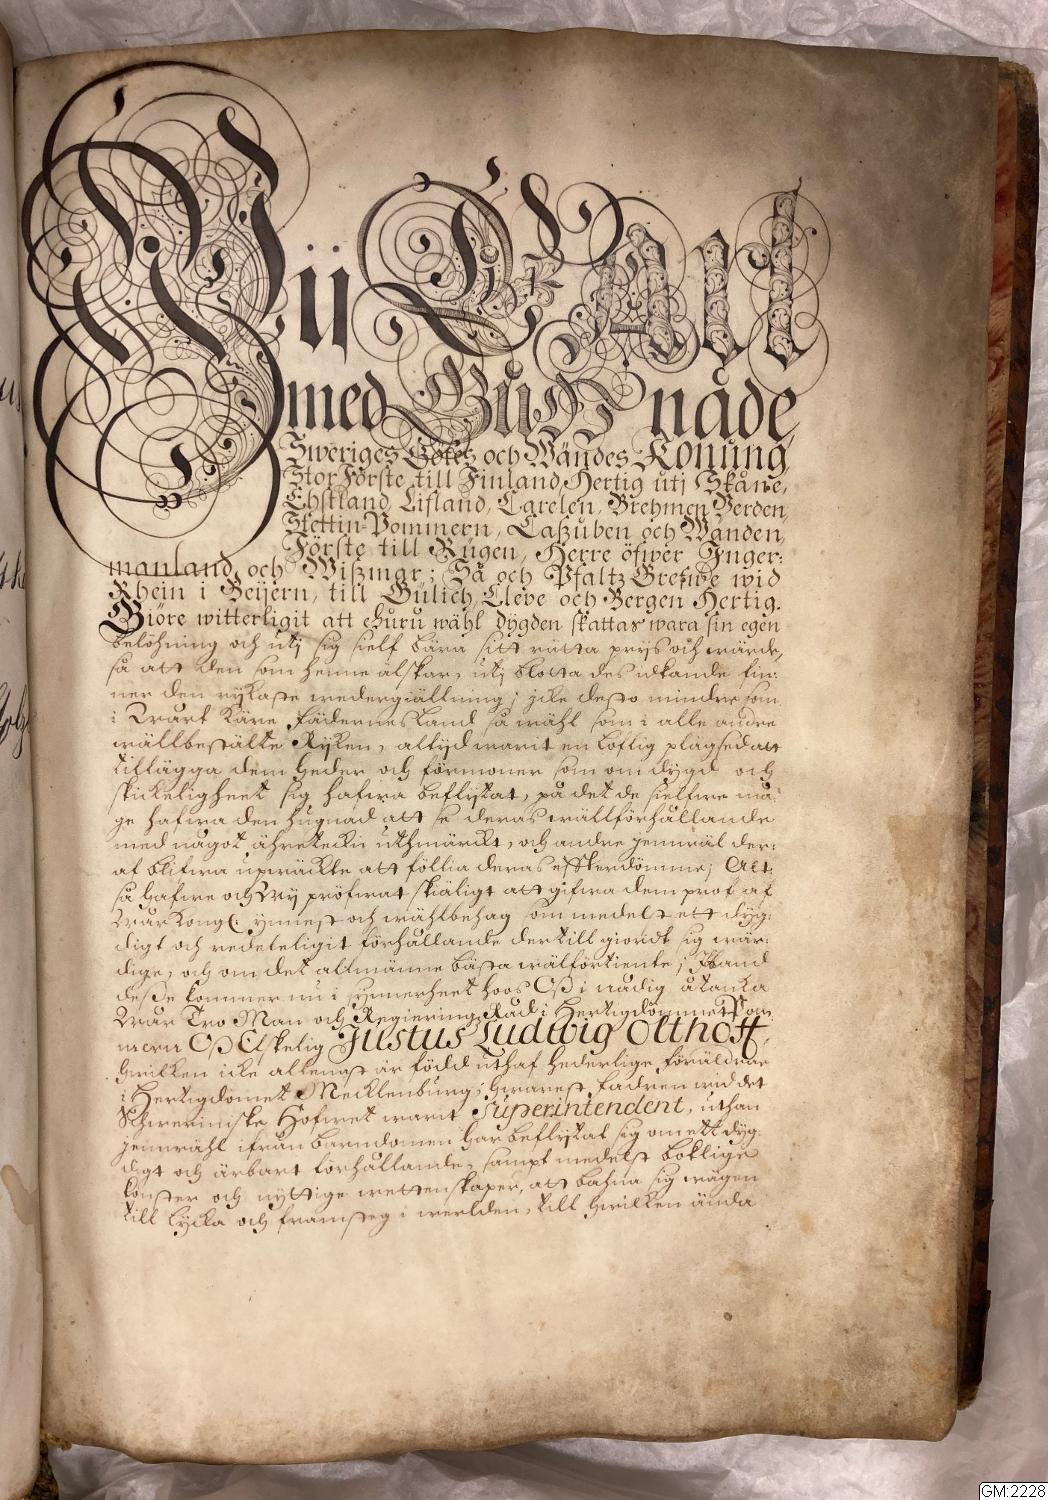 Wii Carl
med Gudz nåde,
Sweriges Götes och Wändes Konung,
StorFörste till Finland, Hertig utj Skåne,
Ehstland, Lifland, Carelen, Brehmen, Verden,
Stettin-Pommern, Caßuben och Wänden,
Förste till Rügen, Herre öfwer Inger:
manland och Wißmar; Så och PfaltzGrefwe wid
Rhein i Beijern, till Gülich, Cleve och Bergen Hertig.
Giöre witterligit att ehuru wähl dygden skattas wara sin egen
belöhning och utj sig sielf bära sitt rätta prijs och wärde,
så att den som henne älskar, utj blotta des idkande fin:
ner den rijkaste wedergiällning; icke desto mindre som
i Wårt Käre FädernesLand så wähl som i alle andre
wällbestälte Rijken, altijd warit en loflig plägsed att
tillägga dem heder och förmoner som om dygd och
skickeligheet sig hafwa beflitat, på det de sielfwe må:
ge hafwa den hugnad att se deras wällförhållande
med något ähretekn uthmärckt, och andre jemwäl der:
af blifwa upwäckte att föllia deras effterdömme; Alt:
så hafwe och Wij pröfwat skiäligt att gifwa dem prof af
Wår Kongl. ynnest och wählbehag som medelst ett dyg:
digt och redeligit förhållande dertill giordt sig wär:
dige, och om det allmänne bästa wälförtiente; Ibland
deße kommer nu i synnerheet hoos Oß i nådig åtanka
Wår Tro Man och RegieringzRåd i Hertigdömmet Pom
mern Oß Elskelig Justus Ludwig Olthoff,
hwilken icke allenast är född uthaf hederlige föräldrar
i Hertigdömet Mecklenburg, hwarest fadren wid det
Schwerinske Hofwet warit Superintendent, uthan
jemwähl ifrån barndomen har beflitat sig om ett dyg:
digt och ärbart förhållande, sampt medelst boklige
konster och nyttige wettenskaper, att bahna sig wägen
till lycka och framsteg i werlden, till hwilken ända
GM:2228